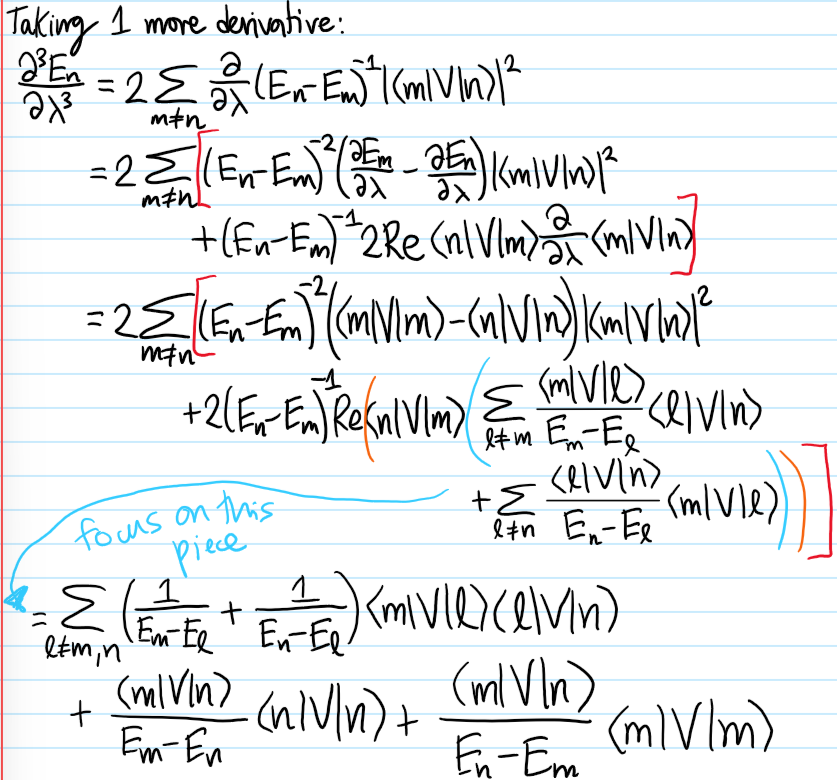 Taking 1 more derivative:
∂³Eₙ/∂λ³ = 2 ∑_{m≠n} ∂/∂λ (Eₙ-Eₘ)⁻¹|⟨m|V|n⟩|²
= 2 ∑_{m≠n} [(Eₙ-Eₘ)⁻² (∂Eₘ/∂λ - ∂Eₙ/∂λ)|⟨m|V|n⟩|²
+ (Eₙ-Eₘ)⁻¹ 2Re ⟨n|V|m⟩ ∂/∂λ ⟨m|V|n⟩]
= 2 ∑_{m≠n} [(Eₙ-Eₘ)⁻² (⟨m|V|m⟩ - ⟨n|V|n⟩)|⟨m|V|n⟩|²
+ 2(Eₙ-Eₘ)⁻¹ Re(⟨n|V|m⟩ (∑_{ℓ≠m} ⟨m|V|ℓ⟩/(Eₘ-E_ℓ) ⟨ℓ|V|n⟩
+ ∑_{ℓ≠n} ⟨ℓ|V|n⟩/(Eₙ-E_ℓ) ⟨m|V|ℓ⟩))]
focus on this
piece
= ∑_{ℓ≠m,n} (1/(Eₘ-E_ℓ) + 1/(Eₙ-E_ℓ)) ⟨m|V|ℓ⟩⟨ℓ|V|n⟩
+ ⟨m|V|n⟩/(Eₘ-Eₙ) ⟨n|V|n⟩ + ⟨m|V|n⟩/(Eₙ-Eₘ) ⟨m|V|m⟩